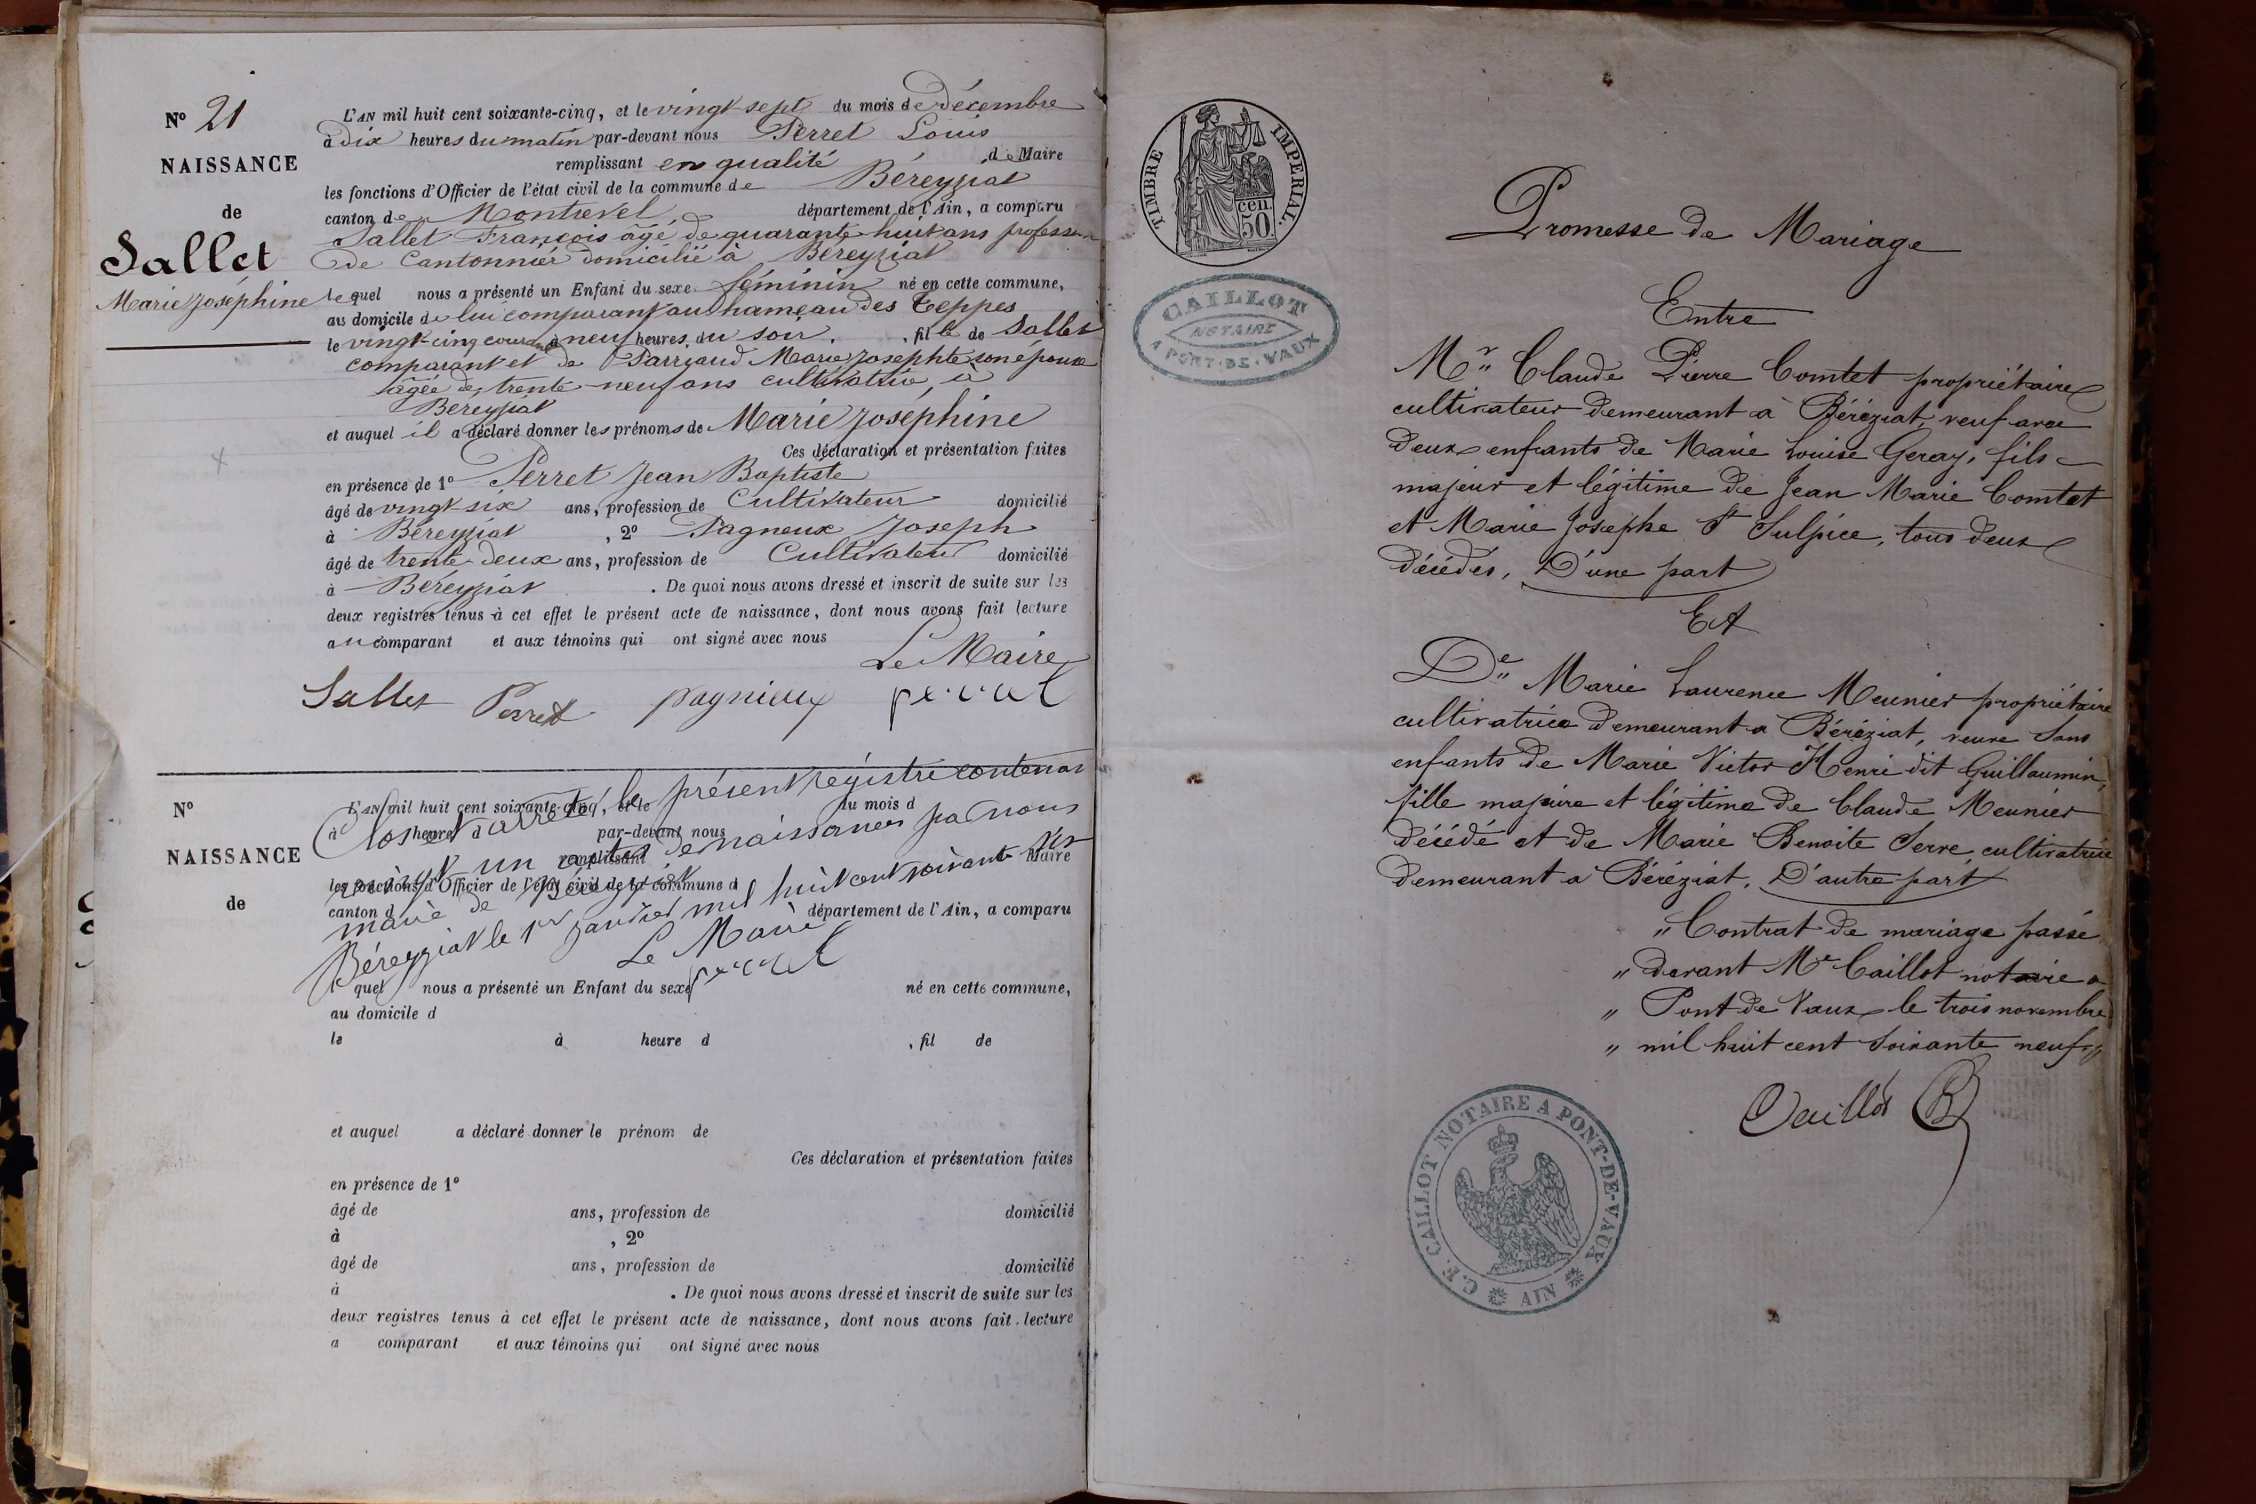 N° 21
NAISSANCE
de
Sallet
Marie Joséphine
L'AN mil huit cent soixante-cinq, et le vingt sept du mois de Décembre
à dix heures du matin par-devant nous Perret Louis
remplissant en qualité de Maire
les fonctions d'Officier de l'état civil de la commune de Béreyziat
canton de Montrevel département de l'Ain, a comparu
Sallet François âgé de quarante huit ans profession
de Cantonnier domicilié à Béreyziat
lequel nous a présenté un Enfant du sexe féminin né en cette commune,
au domicile de lui comparant au hameau des Teppes
le vingt-cinq courant à neuf heures du soir. , fille de Sallet
comparant et de Parriaud Marie Josephte son épouse
âgée de trente neuf ans cultivatrice, à
Béreyziat
et auquel il a déclaré donner les prénoms de Marie Joséphine
Ces déclaration et présentation faites
en présence de 1° Perret Jean Baptiste
âgé de vingt-six ans, profession de Cultivateur domicilié
à Béreyziat , 2° Pagneux Joseph
âgé de trente-deux ans, profession de Cultivateur domicilié
à Béreyziat . De quoi nous avons dressé et inscrit de suite sur les
deux registres tenus à cet effet le présent acte de naissance, dont nous avons fait lecture
au comparant et aux témoins qui ont signé avec nous
Le Maire
Sallet Perret pagnieux perret
N°
NAISSANCE
de
L'AN mil huit cent soixante-cinq, et le du mois d
à heure d par-devant nous
remplissant Maire
les fonctions d'Officier de l'état civil de la commune d
canton d département de l'Ain, a comparu
Clos et arrêté, le présent régistre contenant
vingt-un actes de naissances par nous
maire de Béreyziat
Béreyziat le 1er janvier mil huit cent soixante six
Le Maire
perret
l quel nous a présenté un Enfant du sexe né en cette commune,
au domicile d
le à heure d , fil de
et auquel a déclaré donner le prénom de
Ces déclaration et présentation faites
en présence de 1°
âgé de ans, profession de domicilié
à , 2°
âgé de ans, profession de domicilié
à . De quoi nous avons dressé et inscrit de suite sur les
deux registres tenus à cet effet le présent acte de naissance, dont nous avons fait lecture
a comparant et aux témoins qui ont signé avec nous
TIMBRE IMPERIAL.
50 cen.
CAILLOT
NOTAIRE
A PONT-DE-VAUX
Promesse de Mariage
Entre
Mr. Claude Pierre Comtet propriétaire
cultivateur demeurant à Béréziat, veuf avec
deux enfants de Marie Louise Geray, fils
majeur et légitime de Jean Marie Comtet
et Marie Josephe St Sulpice, tous deux
décédés, D'une part
Et
De. Marie Laurence Meunier propriétaire
cultivatrice demeurant à Béréziat, veuve sans
enfants de Marie Victor Henri dit Guillaumin,
fille majeure et légitime de Claude Meunier
décédé et de Marie Benoite Serve cultivatrice
demeurant à Béréziat, D'autre part
„ Contrat de mariage passé
„ devant Me Caillot notaire à
„ Pont de Vaux le trois novembre
„ mil huit cent soixante neuf „
Caillot
C.F. CAILLOT NOTAIRE A PONT-DE-VAUX
AIN